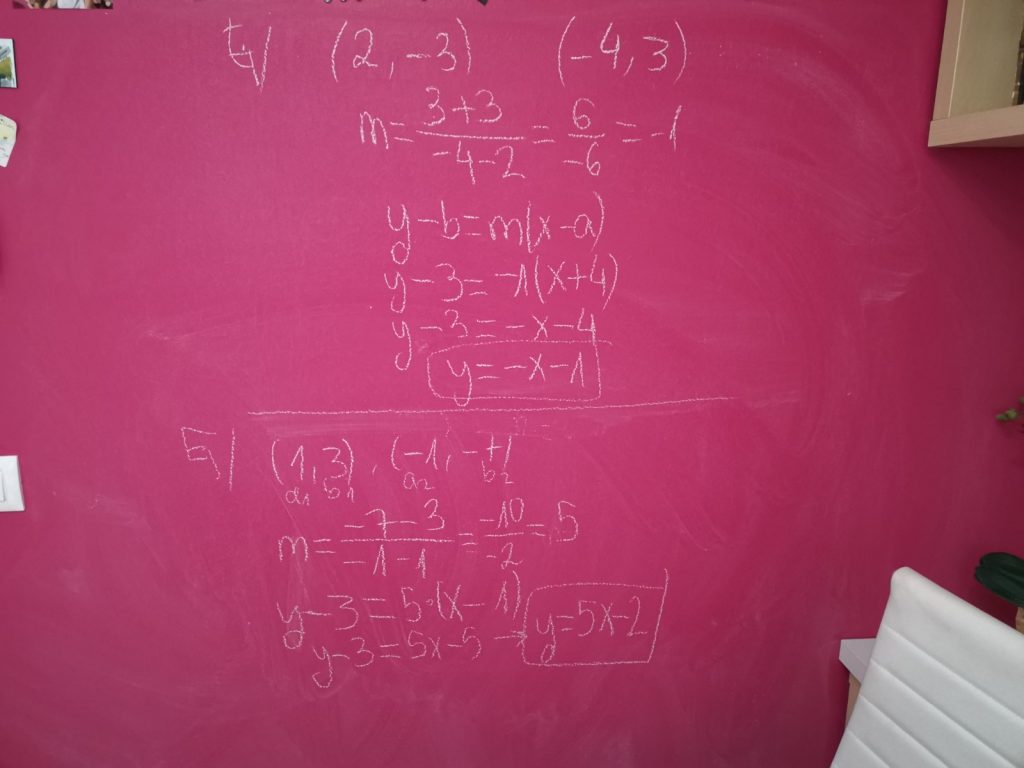 4/ (2, -3) (-4, 3)
m = \frac{3+3}{-4-2} = \frac{6}{-6} = -1
y - b = m(x - a)
y - 3 = -1(x + 4)
y - 3 = -x - 4
y = -x - 1
5/ (1, 3), (-1, -7)
a₁ b₁ a₂ b₂
m = \frac{-7-3}{-1-1} = \frac{-10}{-2} = 5
y - 3 = 5·(x - 1)
y - 3 = 5x - 5 → y = 5x - 2